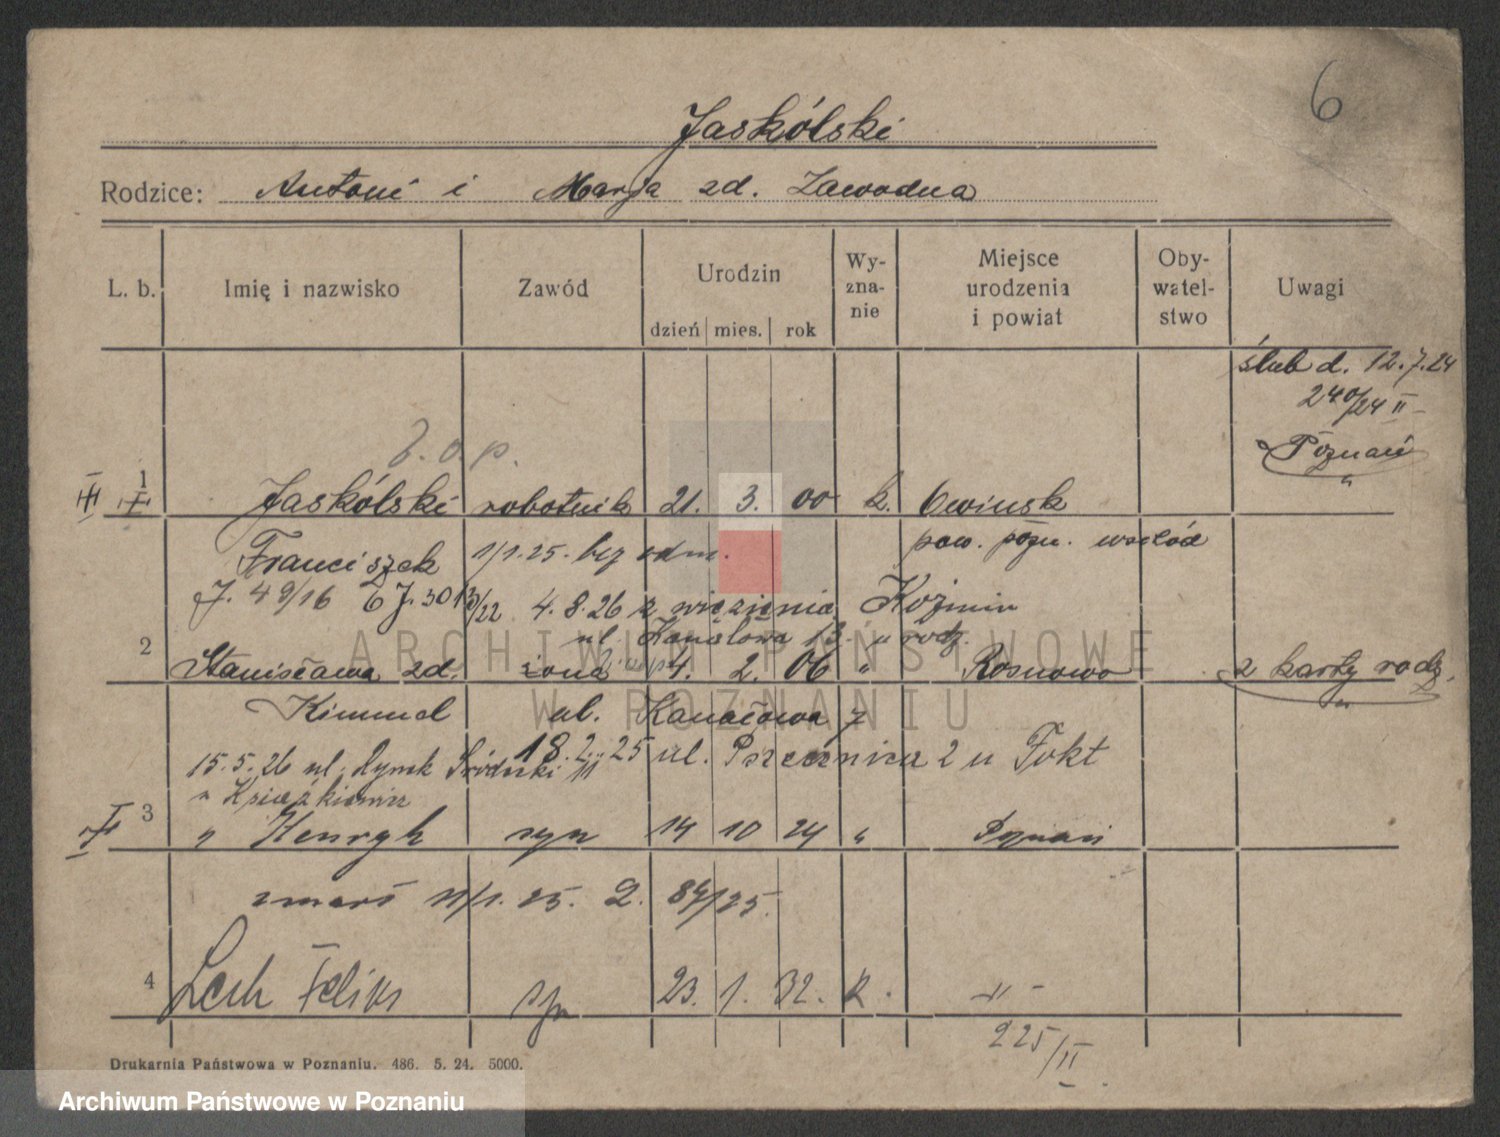 6
Jaskólski
Rodzice: Antoni i Marja zd. Zawodna
L. b. Imię i nazwisko Zawód Urodzin Wy-zna-nie Miejsce urodzenia i powiat Oby-watel-stwo Uwagi
dzień mies. rok
ślub d. 12.7.24
240/24 II
Poznań
1 Jaskólski robotnik 21. 3. 00 k. Owinsk
Franciszek 1/1.25. bez odm. pow. pozn. wschód
J. 49/16 J. 3013/22 4.8.26 z więzienia Koźmin
ul. Kanałowa 13. u rodz.
2 Stanisława zd. żona 4. 2. 06 " Rosnowo z karty rodz.
Kimmel ul. Kanałowa 7
18.2.25 ul. Pszczennica 2 u Fokt
15.5.26 ul. Rynek Śródecki 11
u Książkiewicz
3 " Henryk syn 14 10 24 " Poznań
zmarł 11/1.25. 2. 84/25.
4 Lech Felix syn 23. 1. 32. k. -"-
225/II
Drukarnia Państwowa w Poznaniu. 486. 5. 24. 5000.
ARCHIWUM PAŃSTWOWE
W POZNANIU
Archiwum Państwowe w Poznaniu